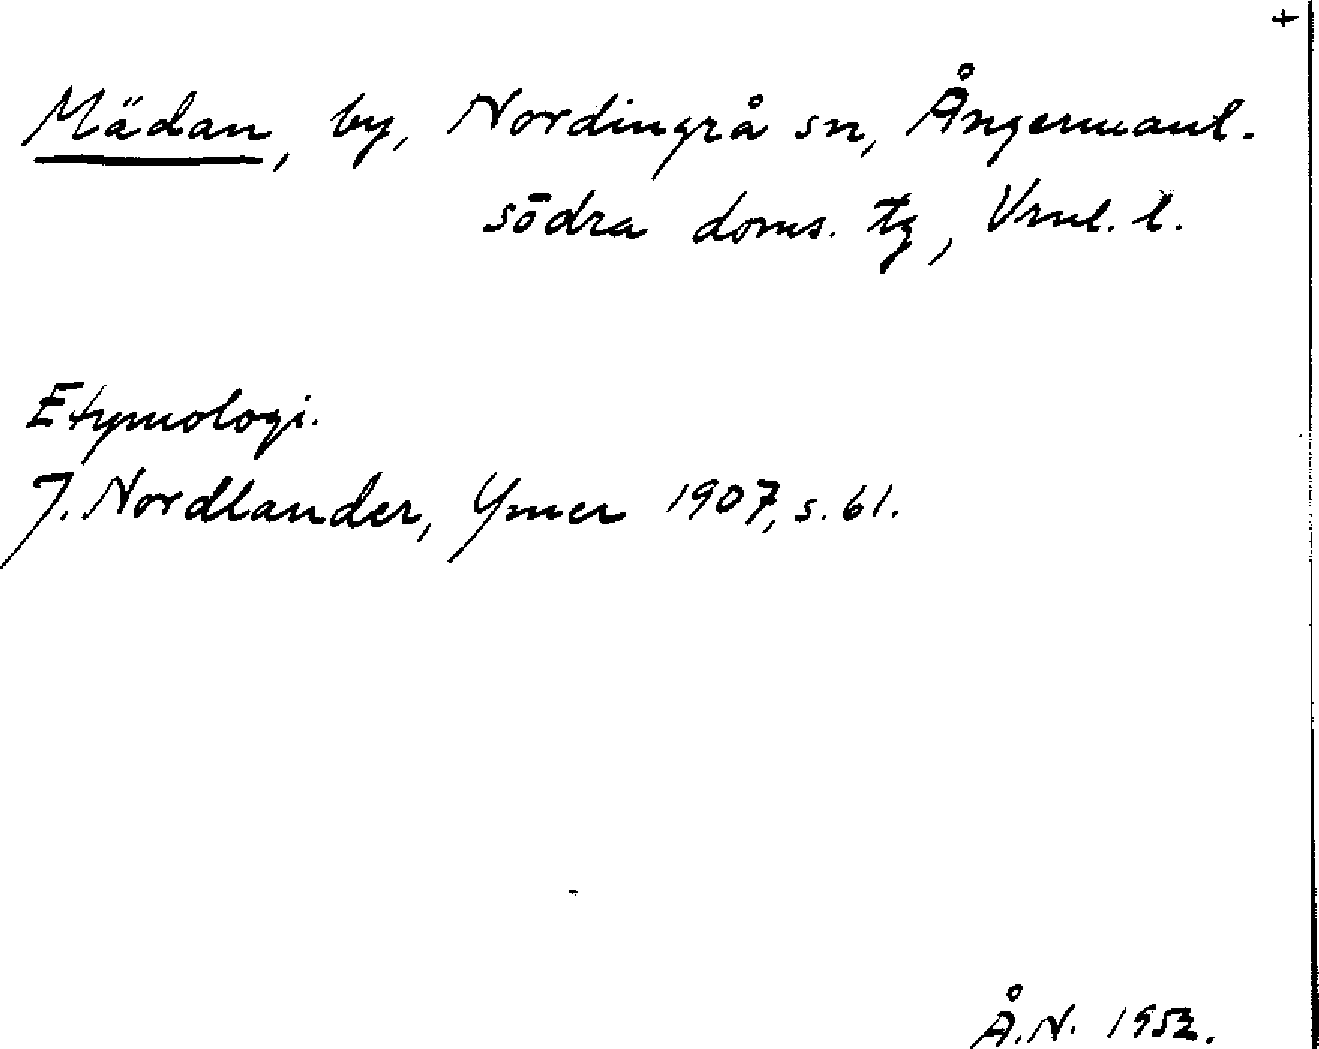 +
Mädan, by, Nordingrå sn, Ångermanl.
södra doms. tg, Vrnl. l.
Etymologi.
J. Nordlander, Ymer 1907, s. 61.
Å.N. 1952.